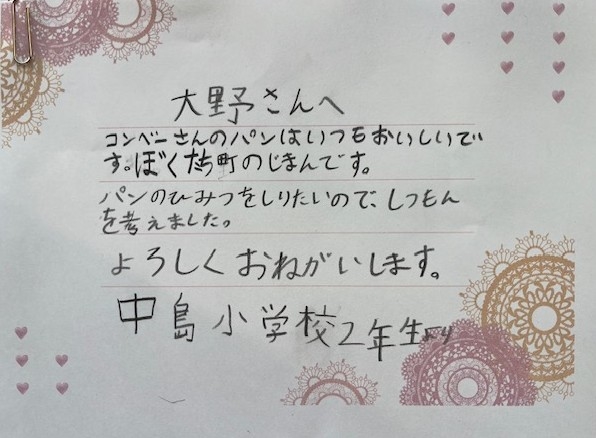 大野さんへ
コンベーさんのパンはいつもおいしいで
す。ぼくたち町のじまんです。
パンのひみつをしりたいので、しつもん
を考えました。
よろしくおねがいします。
中島小学校2年生より